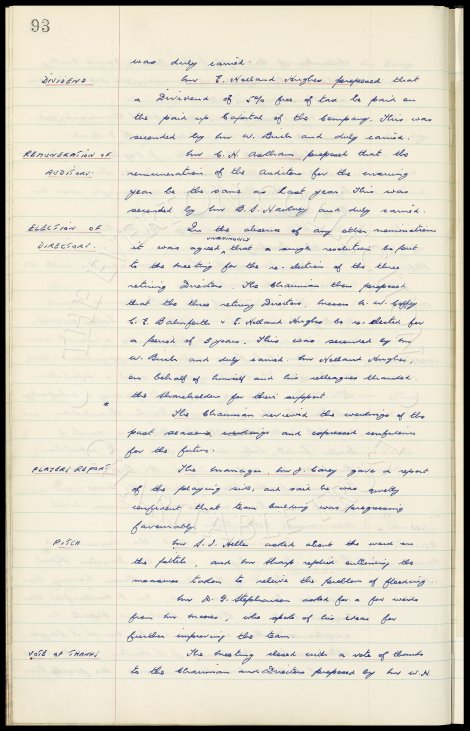 93
was duly carried.
DIVIDEND
Mr E. Holland Hughes proposed that
a Dividend of 5% free of tax be paid on
the paid up Capital of the Company. This was
seconded by Mr W. Burke and duly carried.
REMUNERATION OF
AUDITORS.
Mr C. H. proposed that the
remuneration of the Auditors for the ensuing
year be the same as last year. This was
seconded by Mr B. S. and duly carried.
ELECTION OF
DIRECTORS.
In the absence of any other nominations
it was agreed UNANIMOUSLY that a single resolution be put
to the meeting for the re-election of the three
retiring Directors. The Chairman then proposed
that the three retiring Directors, Messrs A. W.
C. E. Balmforth & E. Holland Hughes be re-elected for
a period of 3 years. This was seconded by Mr
W. Burke and duly carried. Mr Holland Hughes,
on behalf of himself and his colleagues thanked
the Shareholders for their support
The Chairman reviewed the workings of the
past seasons workings and expressed confidence
for the future.
PLAYERS REPORT
The Manager, Mr J. Carey gave a report
of the playing side, and said he was quietly
confident that team building was progressing
favourably.
PITCH
Mr S. J. asked about the work on
the pitch, and Mr replied outlining the
measures taken to relieve the problem of flooding.
Mr D. G. Stephenson asked for a few words
from Mr, who spoke of his ideas for
further improving the team
VOTE OF THANKS
The meeting closed with a vote of thanks
to the Chairman and Directors proposed by Mr W. H.